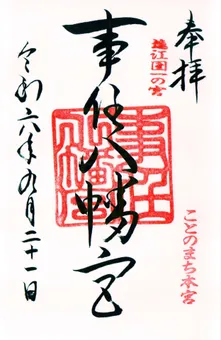 奉拝
遠江国一の宮
ことのまち本宮
事任八幡宮
事任八幡宮
令和六年九月二十一日